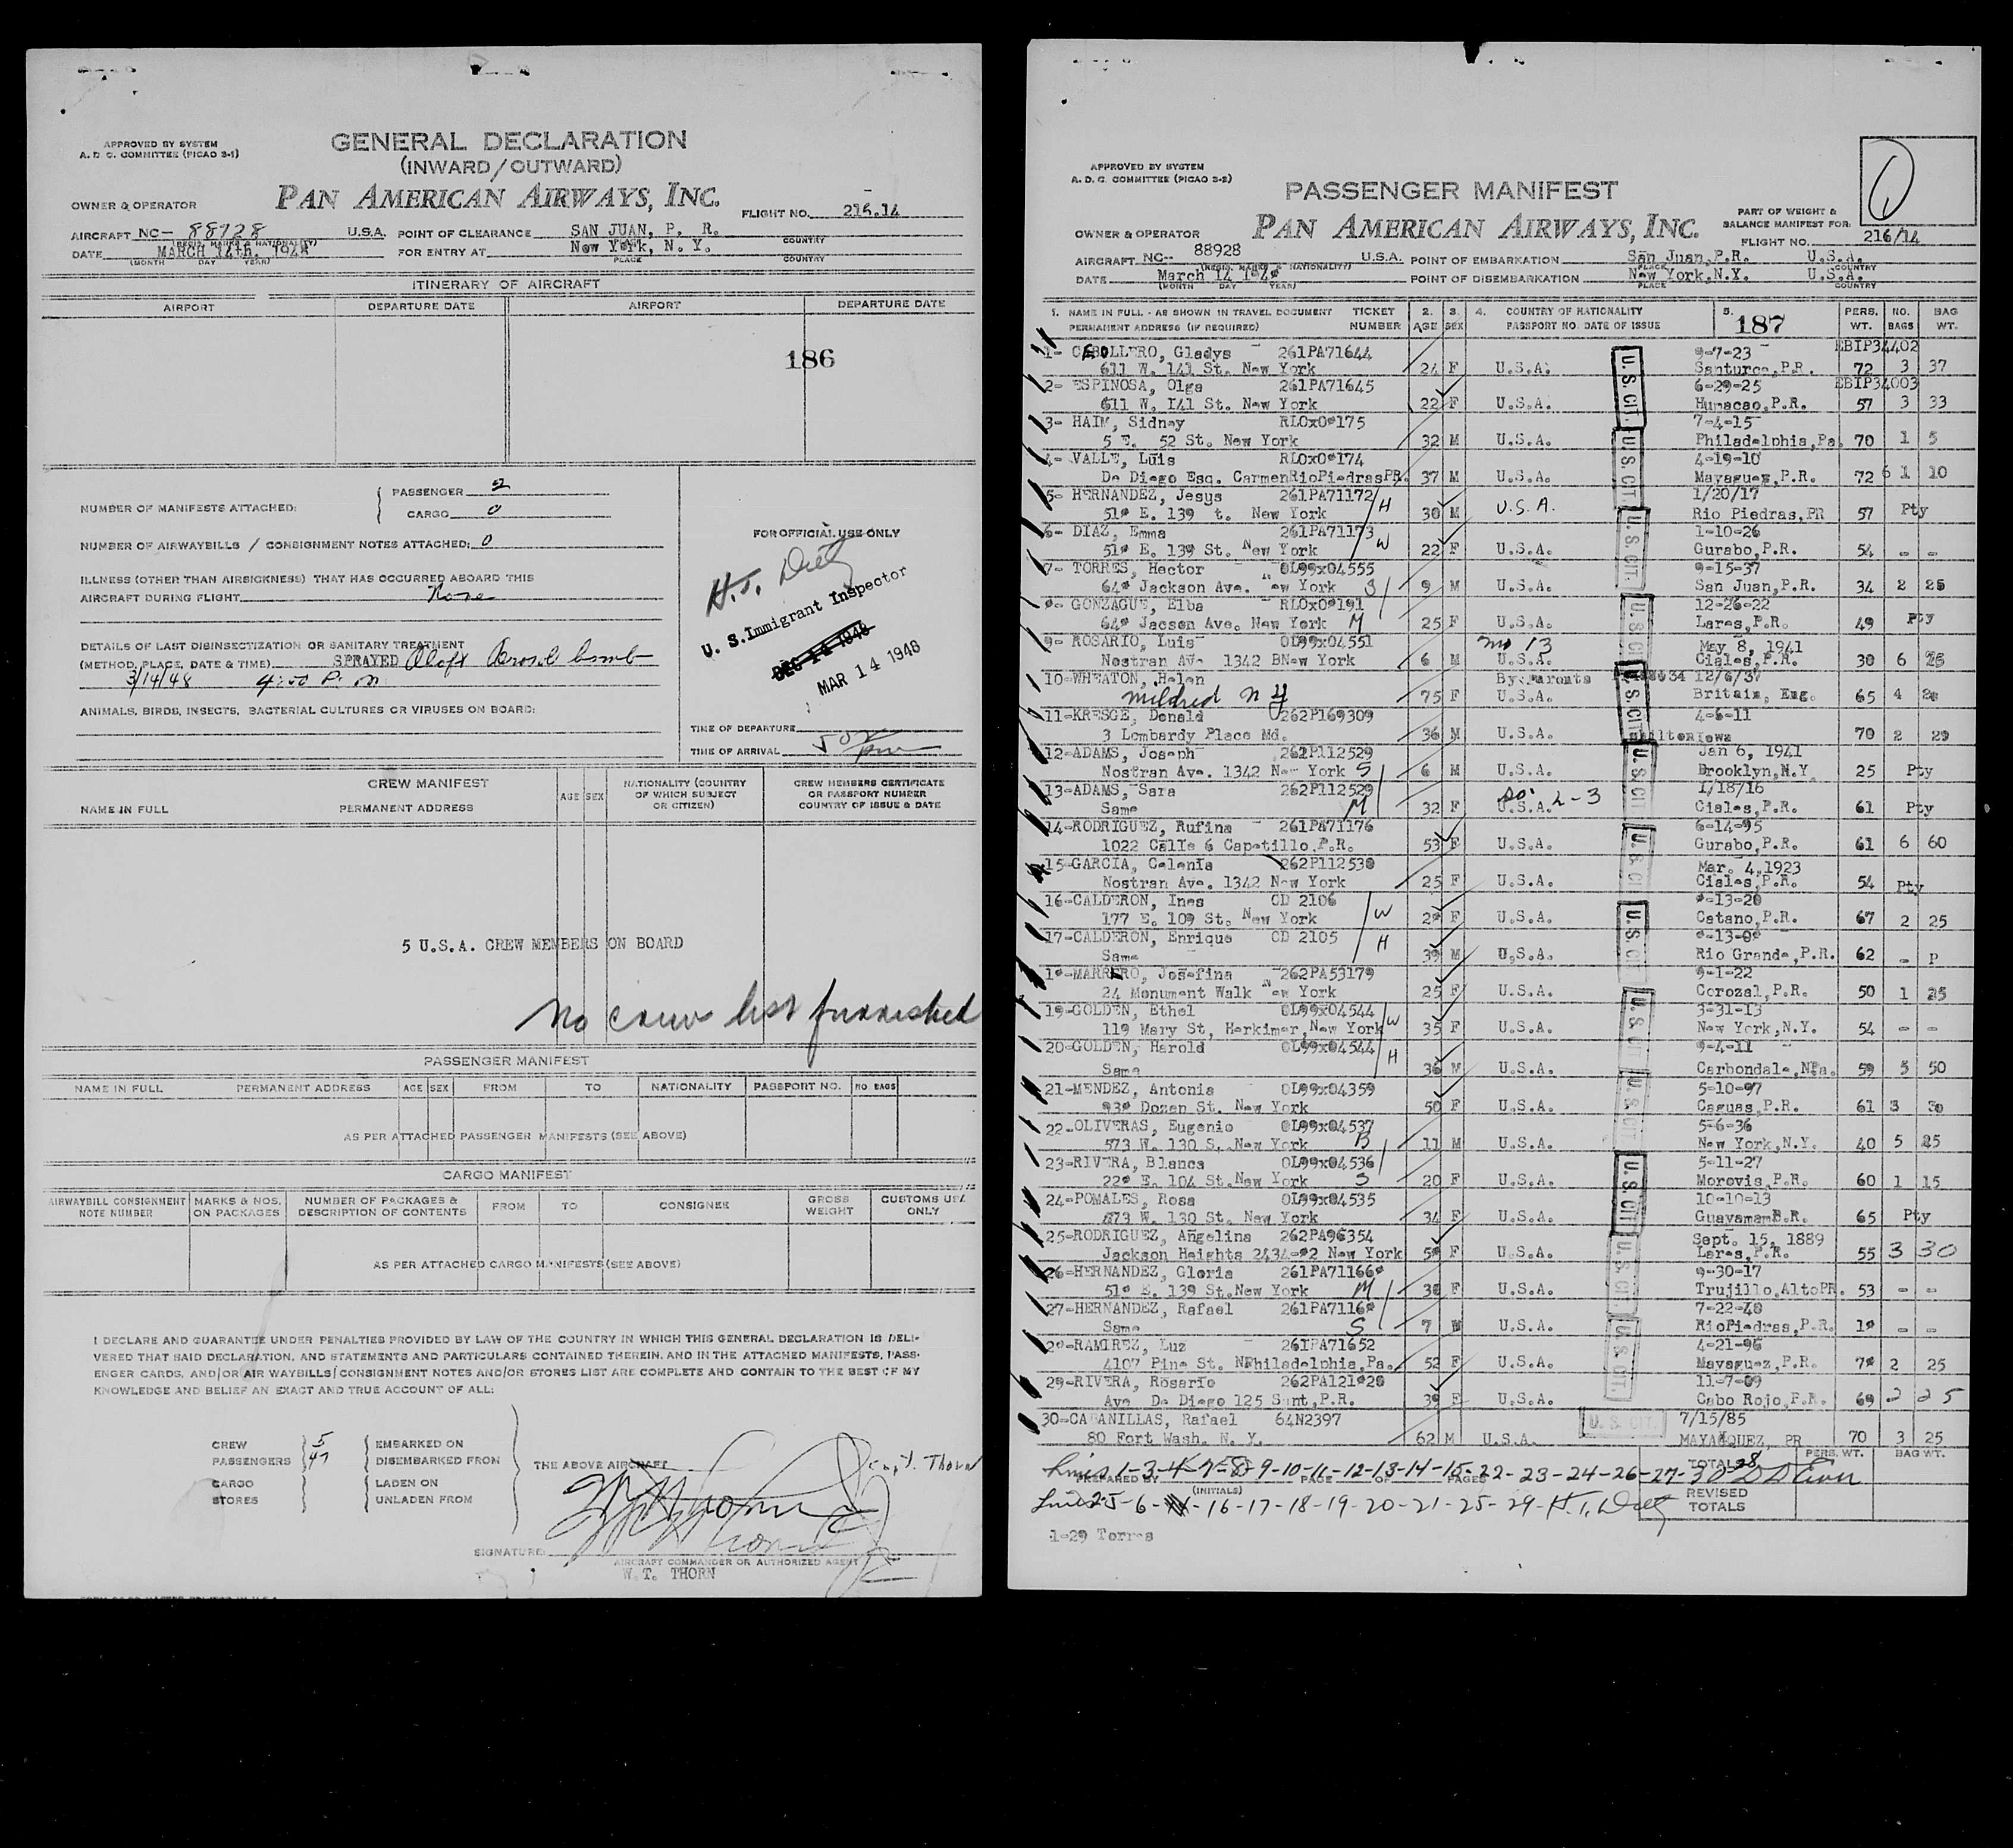 APPROVED BY SYSTEM
A. D. C. COMMITTEE (PICAO 3-1)
GENERAL DECLARATION
(INWARD/OUTWARD)
OWNER & OPERATOR
PAN AMERICAN AIRWAYS, INC.
FLIGHT NO. 216-14
AIRCRAFT NC- 88928 U.S.A. POINT OF CLEARANCE SAN JUAN, P. R.
(REGIS. MARKS & NATIONALITY) PLACE COUNTRY
DATE MARCH 14th, 1948 FOR ENTRY AT New York, N. Y.
(MONTH DAY YEAR) PLACE COUNTRY
ITINERARY OF AIRCRAFT
AIRPORT DEPARTURE DATE AIRPORT DEPARTURE DATE
186
NUMBER OF MANIFESTS ATTACHED: PASSENGER 2
CARGO 0
NUMBER OF AIRWAYBILLS / CONSIGNMENT NOTES ATTACHED: 0
ILLNESS (OTHER THAN AIRSICKNESS) THAT HAS OCCURRED ABOARD THIS
AIRCRAFT DURING FLIGHT None
DETAILS OF LAST DISINSECTIZATION OR SANITARY TREATMENT
(METHOD, PLACE, DATE & TIME) SPRAYED Aloft Aerosol bomb
3/14/48 4:00 P. M
ANIMALS, BIRDS, INSECTS, BACTERIAL CULTURES OR VIRUSES ON BOARD:
FOR OFFICIAL USE ONLY
H.T. Dietz
U. S. Immigrant Inspector
DEC 14 1948
MAR 14 1948
TIME OF DEPARTURE
TIME OF ARRIVAL 5 02 pm
CREW MANIFEST
NAME IN FULL PERMANENT ADDRESS
AGE SEX
NATIONALITY (COUNTRY
OF WHICH SUBJECT
OR CITIZEN)
CREW MEMBERS CERTIFICATE
OR PASSPORT NUMBER
COUNTRY OF ISSUE & DATE
5 U.S.A. CREW MEMBERS ON BOARD
No crew list furnished
PASSENGER MANIFEST
NAME IN FULL PERMANENT ADDRESS AGE SEX FROM TO NATIONALITY PASSPORT NO. NO. BAGS
AS PER ATTACHED PASSENGER MANIFESTS (SEE ABOVE)
CARGO MANIFEST
AIRWAYBILL CONSIGNMENT
NOTE NUMBER
MARKS & NOS.
ON PACKAGES
NUMBER OF PACKAGES &
DESCRIPTION OF CONTENTS
FROM TO CONSIGNEE
GROSS
WEIGHT
CUSTOMS USE
ONLY
AS PER ATTACHED CARGO MANIFESTS (SEE ABOVE)
I DECLARE AND GUARANTEE UNDER PENALTIES PROVIDED BY LAW OF THE COUNTRY IN WHICH THIS GENERAL DECLARATION IS DELI-
VERED THAT SAID DECLARATION, AND STATEMENTS AND PARTICULARS CONTAINED THEREIN, AND IN THE ATTACHED MANIFESTS, PASS-
ENGER CARDS, AND/OR AIR WAYBILLS/CONSIGNMENT NOTES AND/OR STORES LIST ARE COMPLETE AND CONTAIN TO THE BEST OF MY
KNOWLEDGE AND BELIEF AN EXACT AND TRUE ACCOUNT OF ALL:
CREW 5 EMBARKED ON
PASSENGERS 47 DISEMBARKED FROM
CARGO LADEN ON
STORES UNLADEN FROM
THE ABOVE AIRCRAFT
SIGNATURE:
AIRCRAFT COMMANDER OR AUTHORIZED AGENT
W. T. THORN
APPROVED BY SYSTEM
A. D. C. COMMITTEE (PICAO 3-2)
PASSENGER MANIFEST
OWNER & OPERATOR
PAN AMERICAN AIRWAYS, INC.
PART OF WEIGHT &
BALANCE MANIFEST FOR:
FLIGHT NO. 216/14
AIRCRAFT NC-- 88928 U.S.A. POINT OF EMBARKATION San Juan,P.R. U.S.A.
(REGIS. MARKS & NATIONALITY) PLACE COUNTRY
DATE March 14 1948 POINT OF DISEMBARKATION New York,N.Y. U.S.A.
(MONTH DAY YEAR) PLACE COUNTRY
1. NAME IN FULL - AS SHOWN IN TRAVEL DOCUMENT TICKET 2. 3. 4. COUNTRY OF NATIONALITY 5. 187 PERS. NO. BAG
PERMANENT ADDRESS (IF REQUIRED) NUMBER AGE SEX PASSPORT NO. DATE OF ISSUE WT. BAGS WT.
1- CABOLLERO, Gladys 261PA71644 9-7-23 EBIP34402
611 W. 141 St. New York 24 F U.S.A. Santurce,P.R. 72 3 37
2- ESPINOSA, Olga 261PA71645 6-29-25 EBIP34003
611 W. 141 St. New York 22 F U.S.A. Humacao,P.R. 57 3 33
3- HAIM, Sidney RLOx08175 7-4-15
5 E. 52 St. New York 32 M U.S.A. Philadelphia,Pa. 70 1 5
4- VALLE, Luis RLOx08174 4-19-10
De Diego Esq. CarmenRioPiedrasPR. 37 M U.S.A. Mayaguez,P.R. 72 6 1 10
5- HERNANDEZ, Jesus 261PA71172 H 1/20/17
518 E. 139 t. New York 30 M U.S.A. Rio Piedras,PR 57 Pty
6- DIAZ, Emma 261PA71173 W 1-10-26
518 E. 139 St. New York 22 F U.S.A. Gurabo,P.R. 54 - -
7- TORRES, Hector OL99x04555 9-15-37
648 Jackson Ave. New York S 9 M U.S.A. San Juan,P.R. 34 2 25
8- GONZAGUE, Elba RLOx08191 12-26-22
648 Jacson Ave. New York M 25 F U.S.A. Lares,P.R. 49 Pty
9- ROSARIO, Luis OL99x04551 May 8, 1941
Nostran Av. 1342 BNew York 6 M U.S.A. Ciales,P.R. 30 6 25
10-WHEATON, Helen By Parents 12/6/37
Mildred N Y 75 F U.S.A. Britain, Eng. 65 4 28
11-KRESGE, Donald 262P169309 4-6-11
3 Lombardy Place Md. 36 M U.S.A. 70 2 29
12-ADAMS, Joseph 262P112529 Jan 6, 1941
Nostran Ave. 1342 New York S 6 M U.S.A. Brooklyn,N.Y. 25 Pty
13-ADAMS, Sara 262P112529 1/18/16
Same M 32 F U.S.A. Ciales,P.R. 61 Pty
14-RODRIGUEZ, Rufina 261PA71176 6-14-95
1022 Calle 6 Capetillo,P.R. 53 F U.S.A. Gurabo,P.R. 61 6 60
15-GARCIA, Celenia 262P112530 Mar. 4,1923
Nostran Ave. 1342 New York 25 F U.S.A. Ciales,P.R. 54 Pty
16-CALDERON, Ines CD 2106 8-13-20
177 E. 109 St. New York W 28 F U.S.A. Catano,P.R. 67 2 25
17-CALDERON, Enrique CD 2105 8-13-08
Same H 39 M U.S.A. Rio Grande,P.R. 62 - P
18-MARRERO, Josefina 262PA53179 9-1-22
24 Monument Walk New York 25 F U.S.A. Corozal,P.R. 50 1 25
19-GOLDEN, Ethel OL99x04544 3-31-13
119 Mary St, Herkimer,New York W 35 F U.S.A. New York,N.Y. 54 - -
20-GOLDEN, Harold OL99x04544 9-4-11
Same H 36 M U.S.A. Carbondale, Pa. 59 3 50
21-MENDEZ, Antonia OL99x04359 5-10-97
938 Dozen St. New York 50 F U.S.A. Caguas,P.R. 61 3 30
22-OLIVERAS, Eugenio OL99x04537 5-6-36
573 W. 130 S. New York B 11 M U.S.A. New York,N.Y. 40 5 25
23-RIVERA, Blanca OL99x04536 5-11-27
228 E. 104 St.New York S 20 F U.S.A. Morovis,P.R. 60 1 15
24-POMALES, Rosa OL99x04535 10-10-13
573 W. 130 St. New York 34 F U.S.A. Guayama 65 Pty
25-RODRIGUEZ, Angelina 262PA96354 Sept. 15, 1889
Jackson Heights 2434-82 New York 58 F U.S.A. Lares,P.R. 55 3 30
26-HERNANDEZ, Gloria 261PA71166 9-30-17
518 E. 139 St.New York M 30 F U.S.A. Trujillo,AltoPR. 53 - -
27-HERNANDEZ, Rafael 261PA71168 7-22-40
Same S 7 M U.S.A. RioPiedras,P.R. 18 - -
28-RAMIREZ, Luz 261PA71652 4-21-96
4107 Pine St. Philadelphia,Pa. 52 F U.S.A. Mayaguez,P.R. 78 2 25
29-RIVERA, Rosario 262PA121828 11-7-09
Ave De Diego 125 Sant,P.R. 39 F U.S.A. Cabo Rojo,P.R. 69 2 25
30-CABANILLAS, Rafael 64N2397 U. S. CIT. 7/15/85
80 Fort Wash. N. Y. 62 M U.S.A. MAYAGUEZ, PR 70 3 25
TOTALS PERS. WT. BAG WT.
Lines 1-3-4-7-8-9-10-11-12-13-14-15-22-23-24-26-27-30
PREPARED BY (INITIALS) PAGE OF PAGES
REVISED
TOTALS
Lines 2-5-6-16-17-18-19-20-21-25-29-H.T. Dietz
1-29 Torres